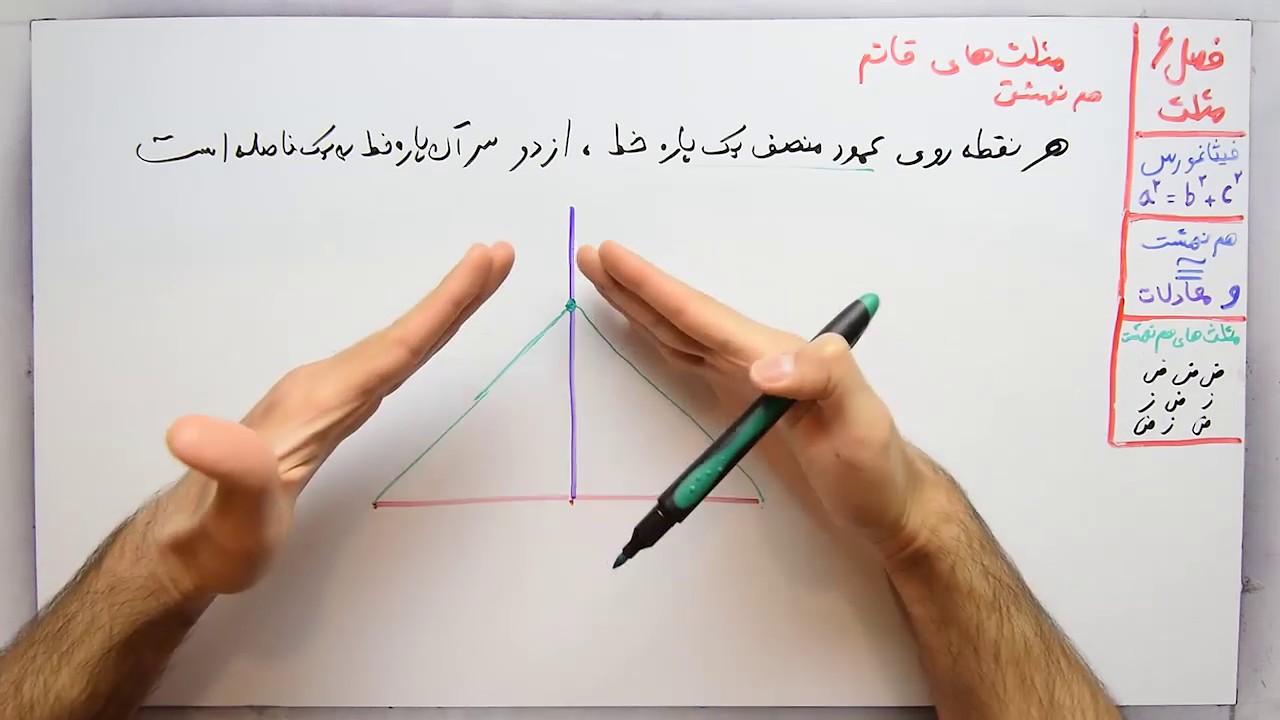 فصل ۶
مثلث
فیثاغورس
a² = b² + c²
هم نهشت
≅
و معادلات
مثلث های هم نهشت
ض ض ض
ز ض ز
ض ز ض
مثلث های قائم
هم نهشت
هر نقطه روی عمود منصف یک پاره خط ، از دو سر آن پاره خط به یک فاصله است